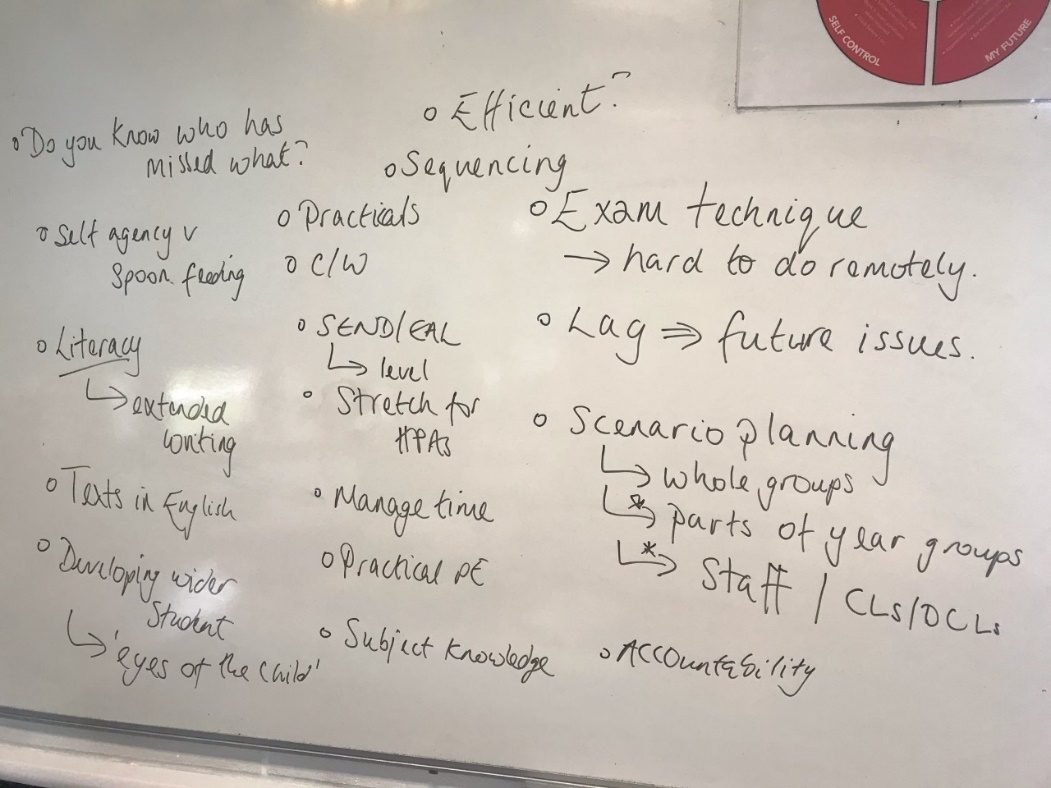 SELF CONTROL
MY FUTURE
o Do you know who has
missed what?
o Self agency v
Spoon feeding
o Literacy
↳ extended
writing
o Texts in English
o Developing wider
Student
↳ 'eyes of the child'
o Efficient?
o Sequencing
o Practicals
o C/W
o SEND/EAL
↳ level
o Stretch for
HPAs
o Manage time
o Practical PE
o Subject knowledge
o Exam technique
→ hard to do remotely.
o Lag ⇒ future issues.
o Scenario planning
↳ whole groups
↳* parts of year groups
↳* Staff / CLs/DCLs
o Accountability